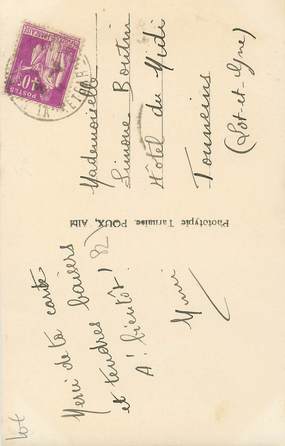 Merci de ta carte
et tendres baisers
A! bientôt!
Mimi
82
Phototypie Tarnaise POUX, Albi
Mademoiselle
Simone Boutin
Hôtel du Midi
Tonneins
(Lot-et-Gne)
POSTES
40c
Lot